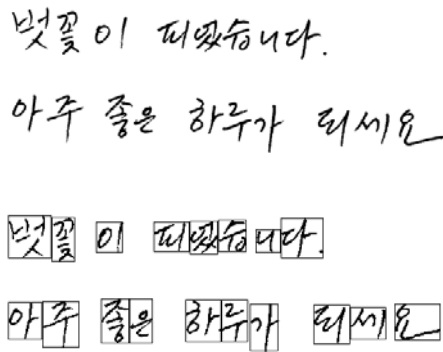 벚꽃이 피었습니다.
아주 좋은 하루가 되세요
벚꽃이 피었습니다.
아주 좋은 하루가 되세요